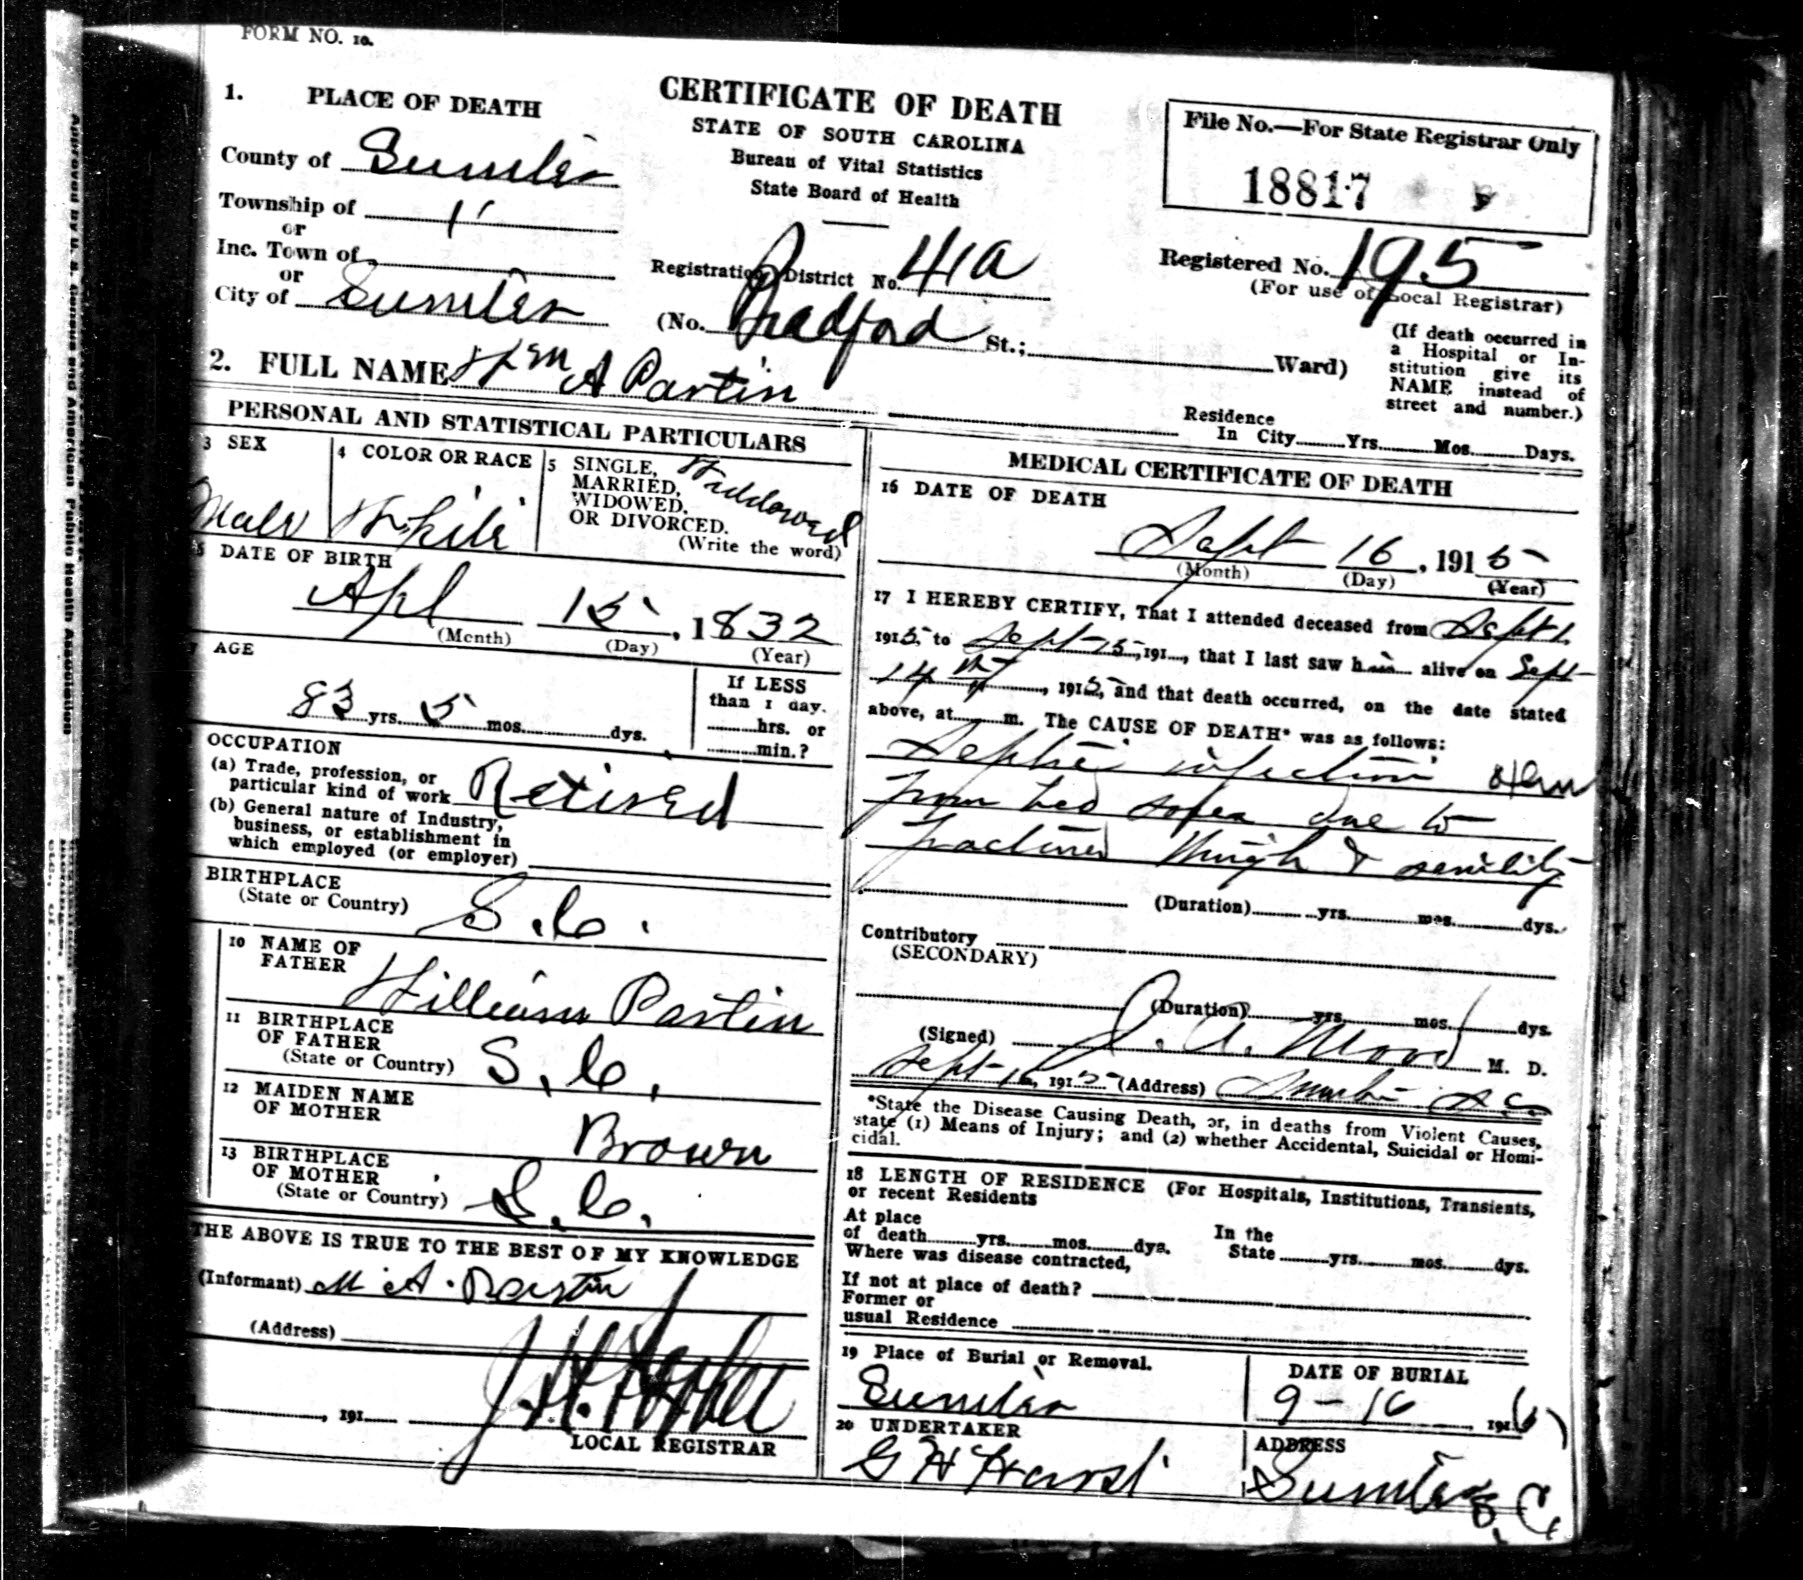 FORM NO. 10.
CERTIFICATE OF DEATH
STATE OF SOUTH CAROLINA
Bureau of Vital Statistics
State Board of Health
File No.—For State Registrar Only
18817
1. PLACE OF DEATH
County of Sumter
Township of
or
Inc. Town of
or
City of Sumter
Registration District No. 41a
Registered No. 195
(For use of Local Registrar)
(No. Bradford St.; Ward)
(If death occurred in
a Hospital or In-
stitution give its
NAME instead of
street and number.)
2. FULL NAME Wm A Partin
Residence
In City Yrs. Mos. Days.
PERSONAL AND STATISTICAL PARTICULARS
3 SEX
Male
4 COLOR OR RACE
White
5 SINGLE,
MARRIED,
WIDOWED,
OR DIVORCED.
(Write the word)
Widdowed
DATE OF BIRTH
Apl 15, 1832
(Month) (Day) (Year)
AGE
83 yrs. 5 mos. dys.
If LESS
than 1 day.
hrs. or
min.?
OCCUPATION
(a) Trade, profession, or
particular kind of work Retired
(b) General nature of Industry,
business, or establishment in
which employed (or employer)
BIRTHPLACE
(State or Country) S.C.
10 NAME OF
FATHER William Partin
11 BIRTHPLACE
OF FATHER
(State or Country) S.C.
12 MAIDEN NAME
OF MOTHER Brown
13 BIRTHPLACE
OF MOTHER
(State or Country) S.C.
THE ABOVE IS TRUE TO THE BEST OF MY KNOWLEDGE
(Informant) M A. Partin
(Address)
, 191
LOCAL REGISTRAR
MEDICAL CERTIFICATE OF DEATH
16 DATE OF DEATH
Sept 16, 1915
(Month) (Day) (Year)
17 I HEREBY CERTIFY, That I attended deceased from Sept 1
1915, to Sept 15, 191, that I last saw him alive on Sept
14th, 1915, and that death occurred, on the date stated
above, at m. The CAUSE OF DEATH* was as follows:
Septic infection
from bed sores due to
fractured thigh & senility
(Duration) yrs. mos. dys.
Contributory
(SECONDARY)
(Duration) yrs. mos. dys.
(Signed) M. D.
Sept 1915 (Address) Sumter S C
*State the Disease Causing Death, or, in deaths from Violent Causes,
state (1) Means of Injury; and (2) whether Accidental, Suicidal or Homi-
cidal.
18 LENGTH OF RESIDENCE (For Hospitals, Institutions, Transients,
or recent Residents
At place
of death yrs. mos. dys.
In the
State yrs. mos. dys.
Where was disease contracted,
If not at place of death?
Former or
usual Residence
19 Place of Burial or Removal.
Sumter
DATE OF BURIAL
9-16, 191
20 UNDERTAKER
G H Hurst
ADDRESS
Sumter S.C.